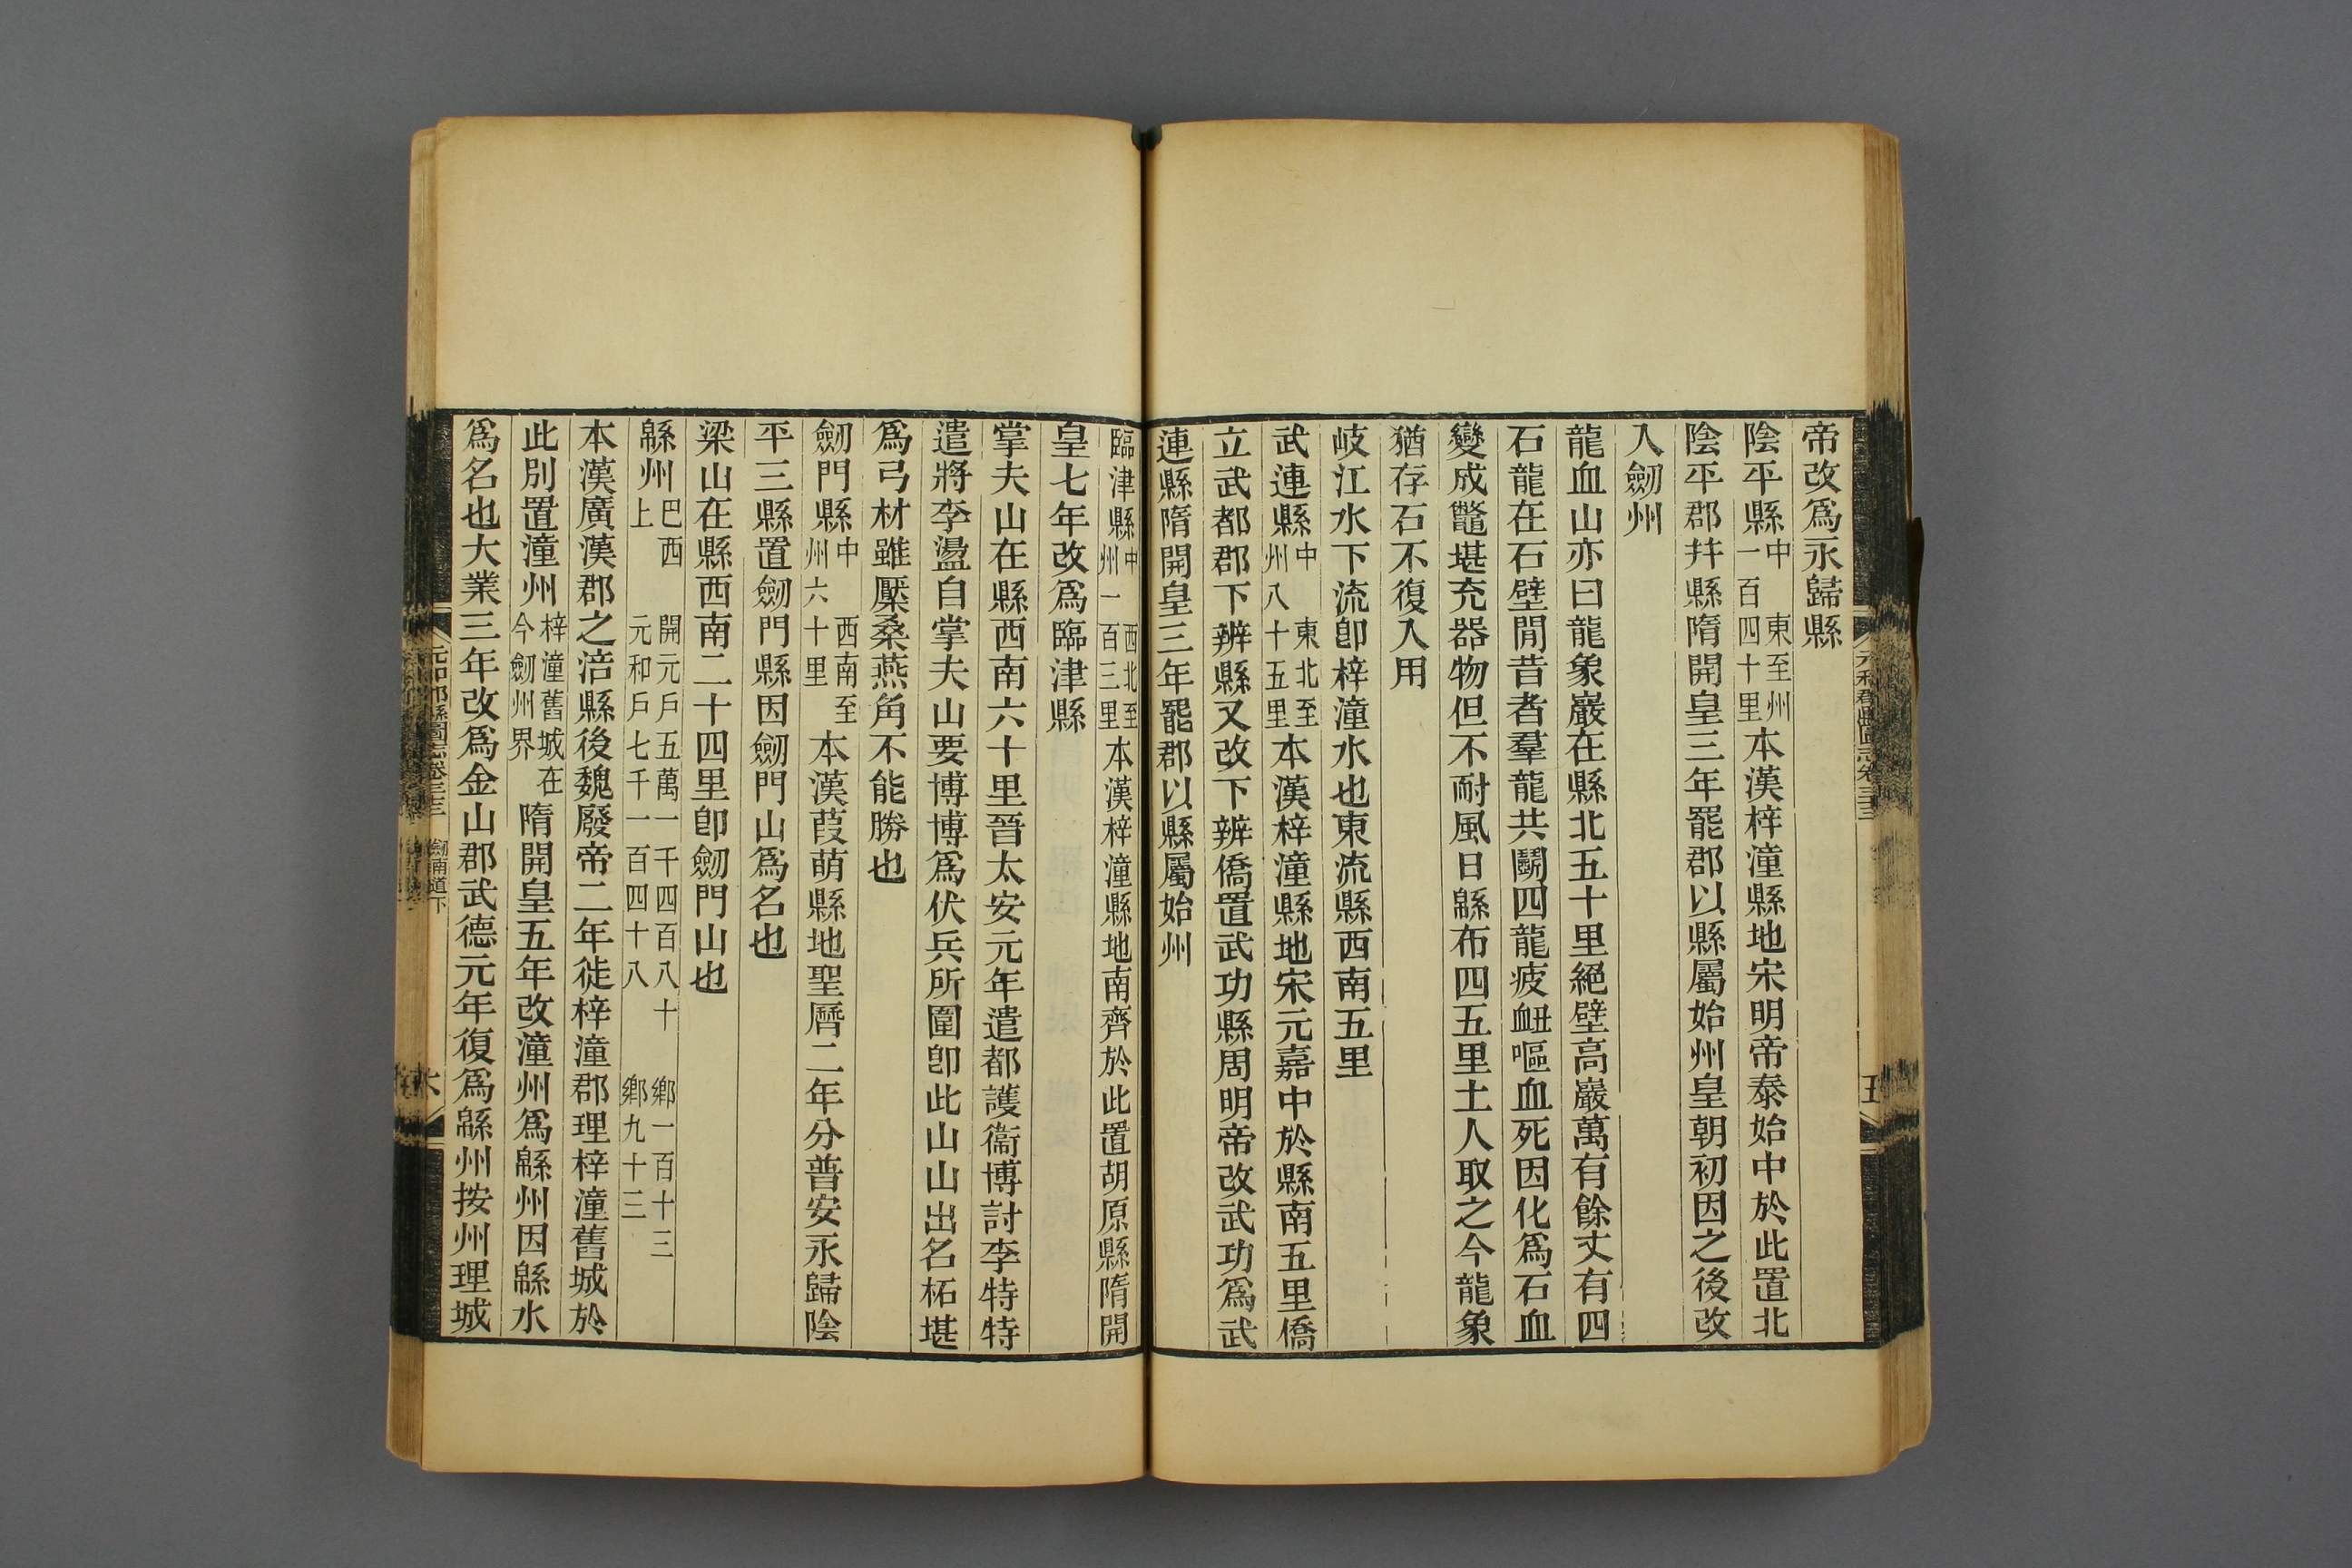 帝改爲永歸縣
陰平縣中 東至州一百四十里本漢梓潼縣地宋明帝泰始中於此置北
陰平郡幷縣隋開皇三年罷郡以縣屬始州皇朝初因之後改
入劒州
龍血山亦曰龍象巖在縣北五十里絕壁高巖萬有餘丈有四
石龍在石壁閒昔者羣龍共鬭四龍疲衂嘔血死因化爲石血
變成鼈堪充器物但不耐風日緜布四五里土人取之今龍象
猶存石不復入用
岐江水下流卽梓潼水也東流縣西南五里
武連縣中 東北至州八十五里本漢梓潼縣地宋元嘉中於縣南五里僑
立武都郡下辨縣又改下辨僑置武功縣周明帝改武功爲武
連縣隋開皇三年罷郡以縣屬始州
臨津縣中 西北至州一百三里本漢梓潼縣地南齊於此置胡原縣隋開
皇七年改爲臨津縣
掌夫山在縣西南六十里晉太安元年遣都護衞博討李特特
遣將李盪自掌夫山要博博爲伏兵所圍卽此山山出名柘堪
爲弓材雖檿桑燕角不能勝也
劒門縣中 西南至州六十里 本漢葭萌縣地聖曆二年分普安永歸陰
平三縣置劒門縣因劒門山爲名也
梁山在縣西南二十四里卽劒門山也
緜州巴西 上 開元戶五萬一千四百八十 鄉一百十三 元和戶七千一百四十八 鄉九十三
本漢廣漢郡之涪縣後魏廢帝二年徙梓潼郡理梓潼舊城於
此別置潼州梓潼舊城在今劒州界 隋開皇五年改潼州爲緜州因緜水
爲名也大業三年改爲金山郡武德元年復爲緜州按州理城
元和郡縣圖志卷三十三 劒南道下